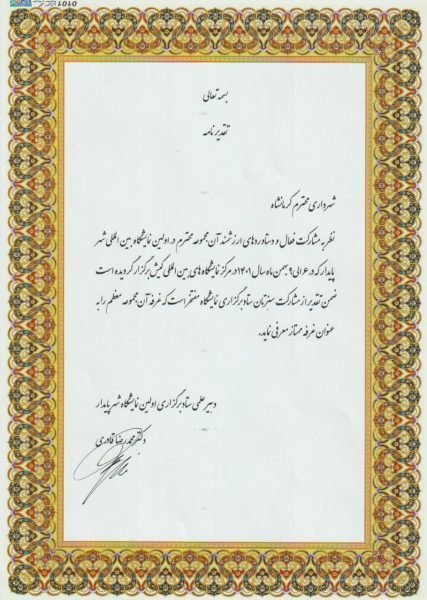 بسمه تعالی
تقدیر نامه
شهرداری محترم کرمانشاه
نظر به مشارکت فعال و دستاوردهای ارزشمند آن مجموعه محترم در اولین نمایشگاه بین المللی شهر
پایدار که در ۶ الی ۹ بهمن ماه سال ۱۴۰۱ در مرکز نمایشگاه های بین المللی کیش برگزار گردیده است
ضمن تقدیر از مشارکت سبزتان ستاد برگزاری نمایشگاه مفتخر است که غرفه آن مجموعه معظم را به
عنوان غرفه ممتاز معرفی نماید.
دبیر علمی ستاد برگزاری اولین نمایشگاه شهر پایدار
دکتر محمدرضا قادری